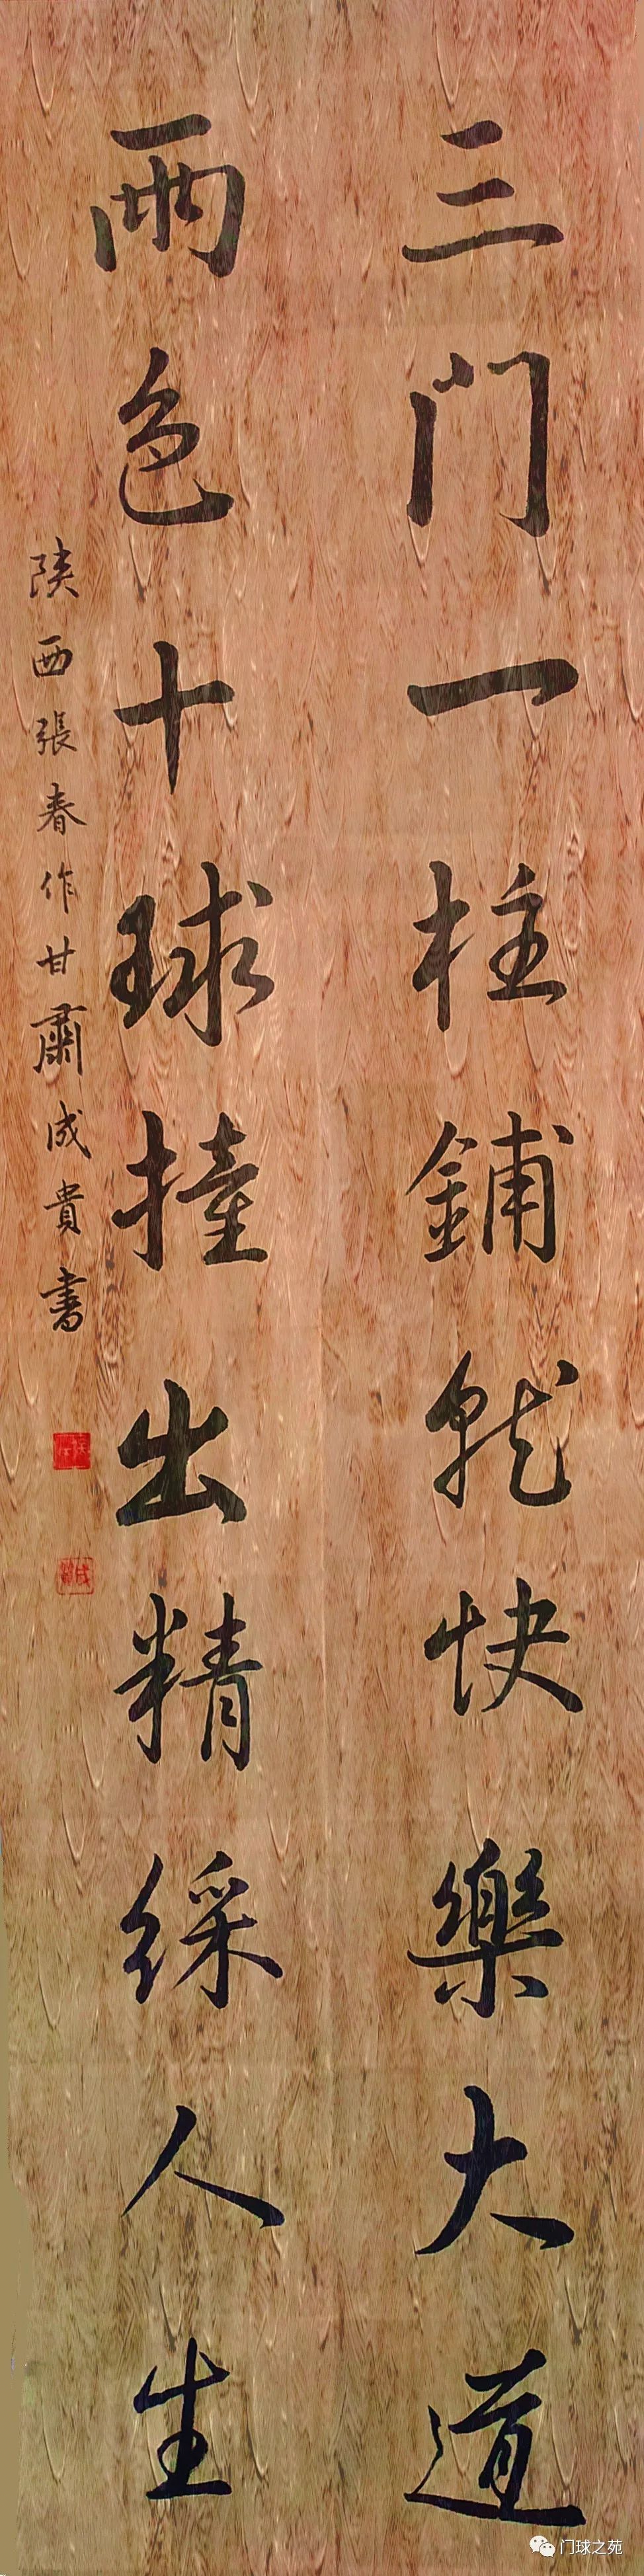 三门一柱鋪就快樂大道
兩色十球撞出精綵人生
陝西張春作甘肅成貴書
门球之苑